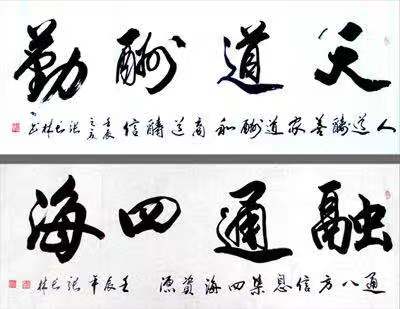 天道酬勤
人道酬善家道酬和商道酬信
壬辰之夏
融通四海
通八方信息集四海资源
壬辰年